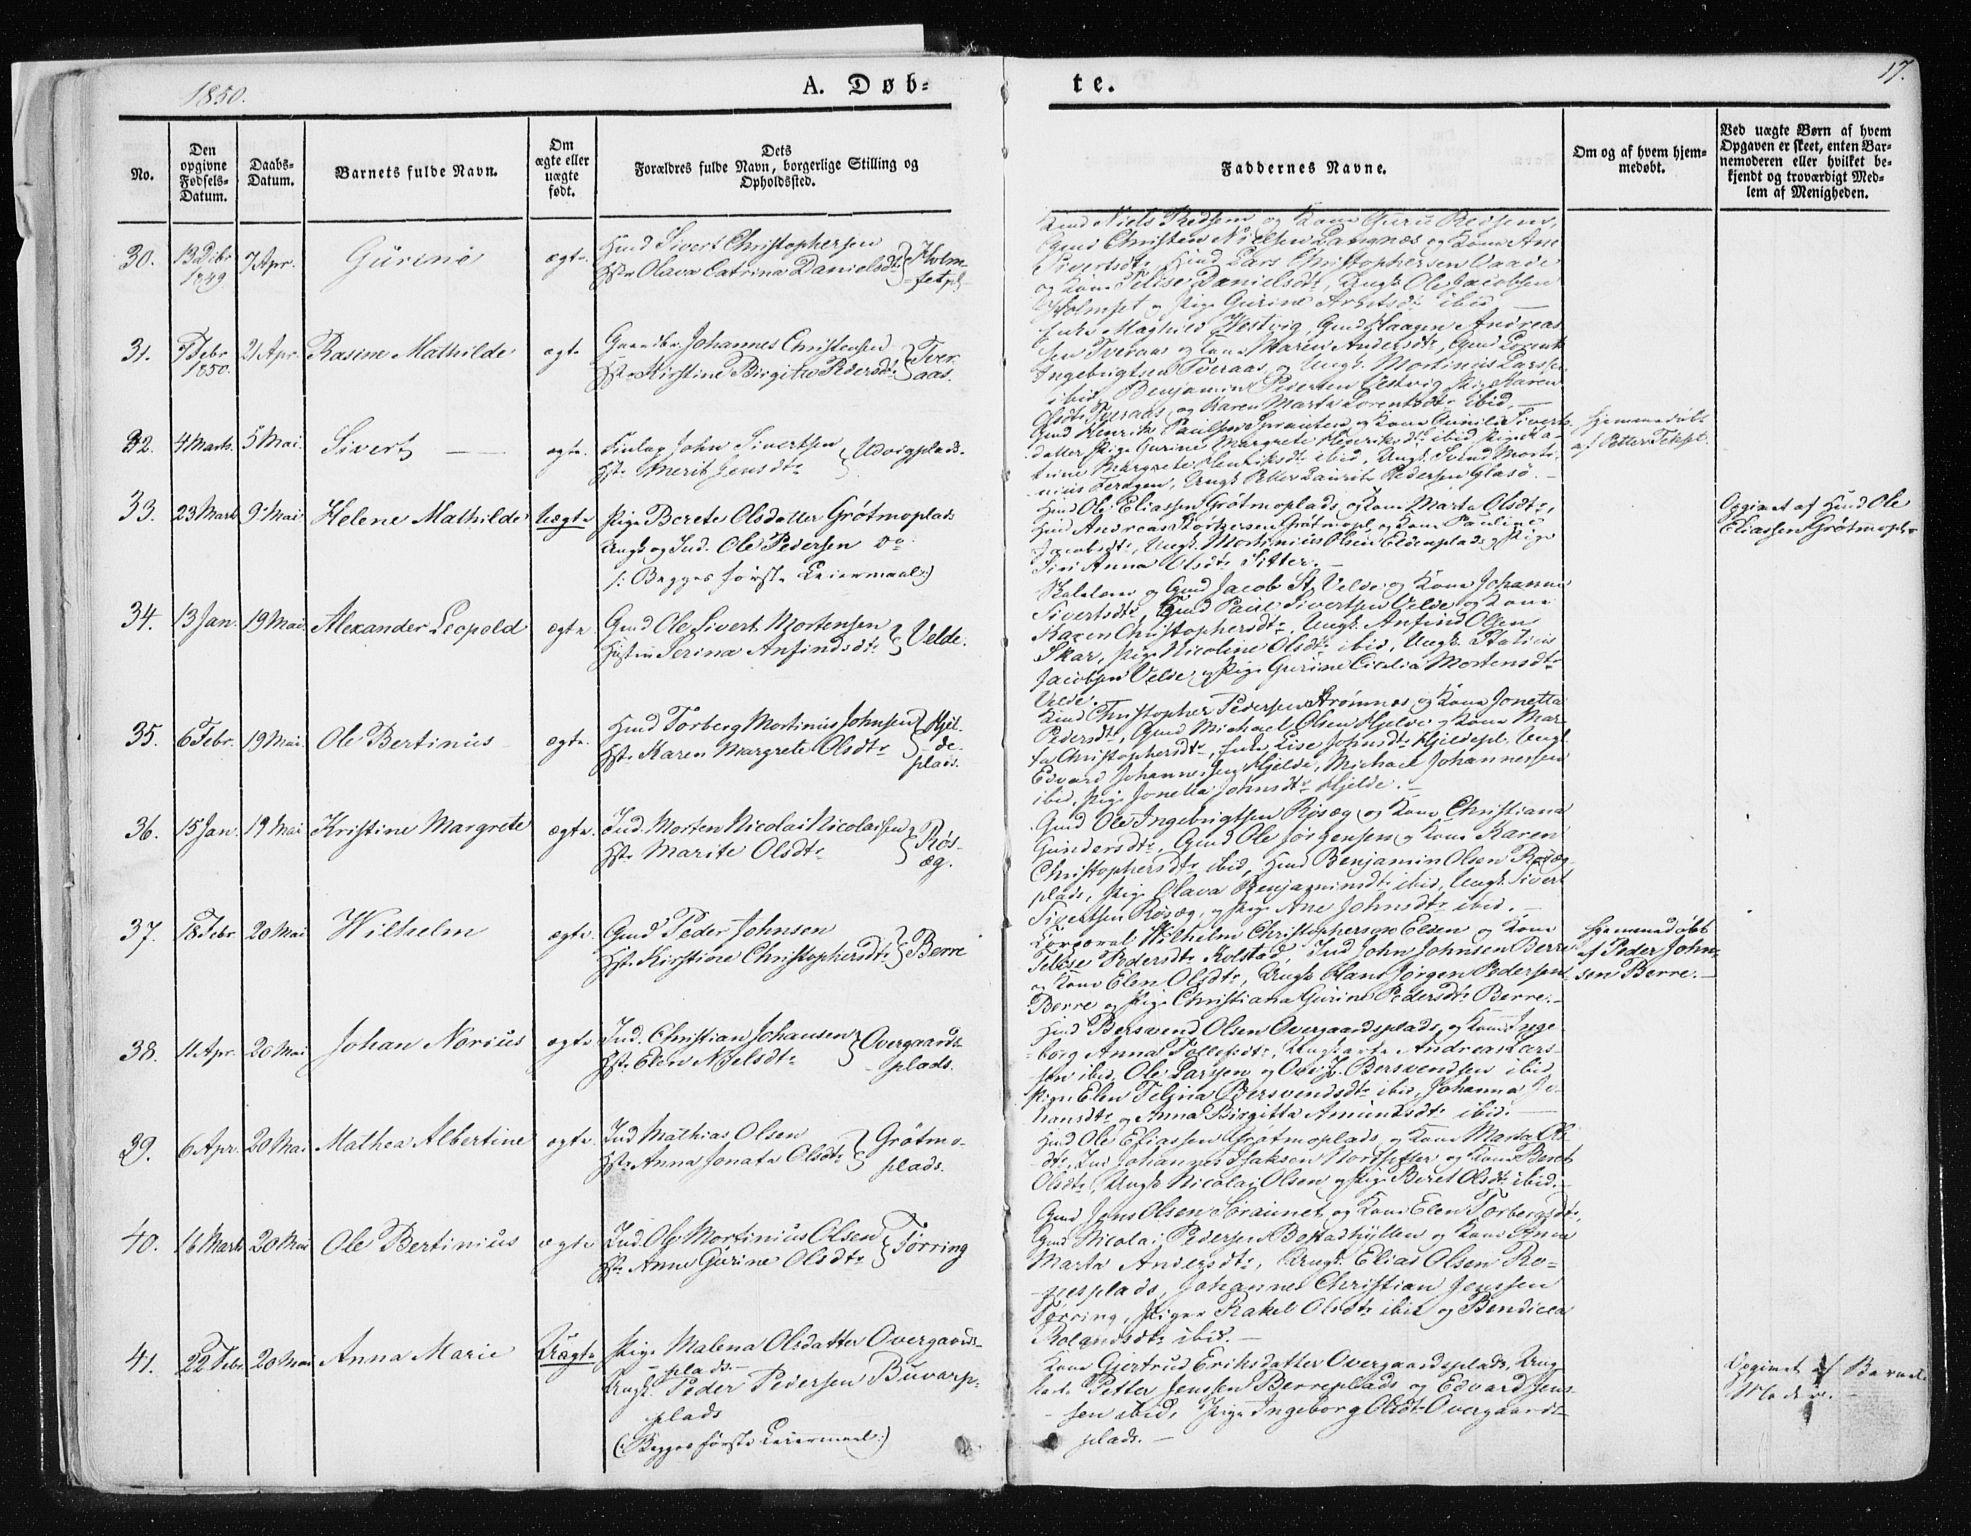 1850.
A. Døb=
te.
17.
No.
Den opgivne Fødsels-Datum.
Daabs-Datum.
Barnets fulde Navn.
Om ægte eller uægte født.
Dets Forældres fulde Navn, borgerlige Stilling og Opholdssted.
Faddernes Navne.
Om og af hvem hjemmedøbt.
Ved uægte Børn af hvem Opgaven er skeet, enten Barnemoderen eller hvilket bekjendt og troværdigt Medlem af Menigheden.
30.
1849
7 Apr.
Gurine
ægte
Hmd Sivert Christophersen
Hst: Olava Catrina Danielsdt:
Holm-
setpl.
Niels og Kone Guru
Gmd Christen Nielsen Langnæs og Kone Ane
Sivertsdt: Hmd Lars Christophersen Vaade
og Kone Felise Danielsdt:, Ungk Ole Jacobsen
Holmset og Pige Gurine ibid
31.
Febr 1850.
21 Apr.
Rasine Mathilde
ægte
Gaardbr. Johannes Christensen
Hst: Kirstine Birgitte Pedersdt:
Tver-
aas.
Enke Maghild Hestvig, Gmd Haagen Andreas-
sen Tveraas og Kone Maren Andersdt:, Gmd Lorents
Ingebrigtsen Tveraas, og Ungk: Mortinius Larssen
ibid, Benjamin Pedersen Pige Karen
Olsdt: Tveraas, og Karen Marta Lorentsdt: ibid.
32.
4 Marts.
5 Mai.
Sivert
ægte.
John Sivertsen
Hst: Merit Jensdt:
Udvigplads.
Gmd Henrik Paulsen og Kone Gunild Siverts-
datter Pige Gurine Margrete Henriksdt: ibid, Pige Ka-
trine Margrete Henriksdt: ibid, Ungk: Svend Morti-
nius, Ungk Petter Laurits Pedersen Glasø.
Hjemmedøbt
af Petter
33.
23 Marts
9 Mai
Helene Mathilde
Uægte
Pige Berete Olsdatter Grötmoplads
Ungk og Ind. Ole Pedersen do.
/: Begges første Leiermaal:)
Hmd Ole Eliassen Grötmoplads og Kone Marta Olsdt:,
Hmd Andreas Grötmopl. og Kone Pauline
Jacobsdt:, Ungk: Mortinius Olsen Eldenplads og Pige
Siri Anna Olsdt: Sitter.
Opgivet af Hmd Ole
Eliassen Grötmopl.
34.
13 Jan.
19 Mai.
Alexander Leopold
ægte
Gmd Ole Sivert Mortensen
Hustru Serina Anfindsdt:
Velde.
og Gmd Jacob St. Velde og Kone Johanna
Sivertsdt: Gmd Paul Sivertsen Velde og Kone
Karen Christophersdt:, Ungk: Anfind Olsen
Skar, Pige Nicoline Olsdt: ibid, Ungk: Statius
Jacobsen Velde, og Pige Gurine Cicilia Mortensdt:
Velde.
35.
6 Febr.
19 Mai.
Ole Bertinus
ægte.
Hmd Torberg Mortinus Johnsen
Hst: Karen Margrete Olsdt:
Hjel-
de-
plads.
Hmd Christopher Pedersen Strömnæs og Kone Jonetta
Pedersdt:, Gmd Michael Olsen Hjelde og Kone Mar-
ta Christophersdt:, Enke Lise Johnsdt: Hjeldepl. Ungk
Edvard Johannessen Hjelde, Michael Johannessen
ibid, Pige Jonetta Johnsdt: Hjelde.
36.
15 Jan.
19 Mai
Kristine Margrete
ægte.
Ind. Morten Nicolai Nicolaisen
Hst: Marite Olsdt:
Røs-
æg.
Gmd Ole Ingebrigtsen Røsæg og Kone Christiana
Gundersdt:, Gmd Ole Jørgensen og Kone Karen
Christophersdt: ibid, Hmd Benjamin Olsen Røsæg-
plads, Pige Olava Benjaminsdt: ibid, Ungk: Sivert
Sivertsen Røsæg, og Pige Ane Johnsdt: ibid.
37.
18 Febr.
20 Mai
Wilhelm
ægte.
Gmd Peder Johnsen
Hst: Kirstine Christophersdt:
Berre
Korporal Wilhelm Christophersen Elden og Kone
Felise Pedersdt: Rolstad, Ind John Johnsen Berre
og Kone Elen Olsdt:, Ungk Hans Jørgen Pedersen
Berre og Pige Christiana Gurine Pedersdt: Berre.
Hjemmedøbt
af Peder John-
sen Berre.
38.
11 Apr.
20 Mai
Johan Norius
ægte
Ind. Christian Johansen
Hst: Elen Nielsdt:
Overgaards-
plads.
Hmd Bersvend Olsen Overgaardsplads og Kone Inge-
borg Anna Tollefsdt:, Ungkarle Andreas Lars-
sen ibid, Ole Larssen og Ove J. Bersvendsen ibid,
Pige Elen Felina Bersvendsdt: ibid, Johanna Jo-
hansdt: og Anna Birgitta Amundsdt: ibid.
39.
6 Apr.
20 Mai
Mathea Albertine
ægte
Ind Mathias Olsen
Hst: Anna Jonata Olsdt:
Grötmo-
plads.
Hmd Ole Eliassen Grötmoplads, og Kone Marta Ols-
dt:, Ind Johannes Isaksen og Kone Beret
Olsdt:, Ungk Nicolai Olsen og Pige Beret Olsdt: ibid.
40.
16 Marts
20 Mai
Ole Bertinius
ægte
Ind. Ole Mortinius Olsen
Hst: Anne Gurine Olsdt:
Törring
Gmd Jens Olsen og Kone Elen Torbergsdt:,
Gmd Nicolai Pedersen og Kone Anne
Marta Andersdt:, Ungk: Elias Olsen Ro-
nesplads, Johannes Christian Jenssen
Törring, Piger Rakel Olsdt: ibid og Bendicea
Rolandsdt: ibid.
41.
22 Febr.
20 Mai
Anna Marie
Uægte
Pige Malena Olsdatter Overgaards-
plads.
Ungk: Peder Pedersen Buvarp-
plads
(:Begges første Leiermaal:)
Kone Gjertrud Eriksdatter Overgaardsplads, Ung-
karl Petter Jenssen Berreplads og Edvard Jens-
sen ibid, Pige Ingeborg Olsdt: Overgaards-
plads.
Opgivet af Barnets
Moder.